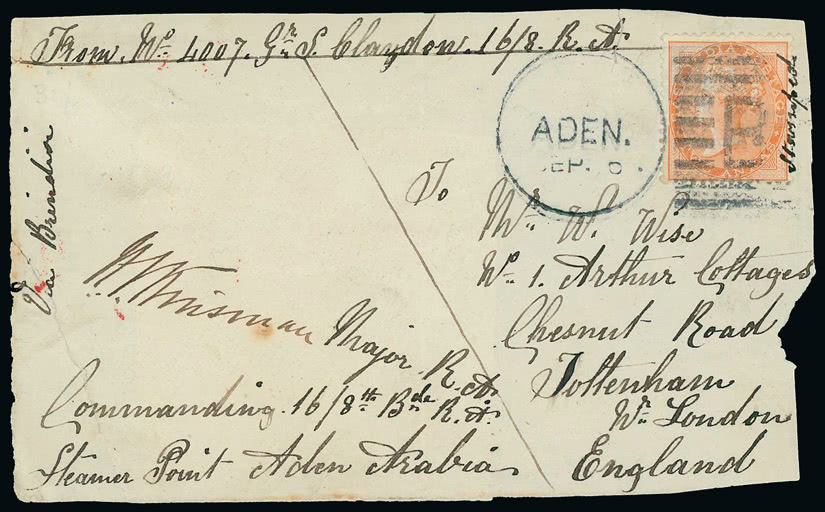 From. No. 4007. Gr. S. Claydon. 16/8. R.A.
Via Brindisi
ADEN.
SEP. 6
To
Mr. W. Wise
No. 1. Arthur Cottages
Chesnut Road
Tottenham
Nr. London
England
Major R.A.
Commanding. 16/8th Bde R.A.
Steamer Point Aden Arabia